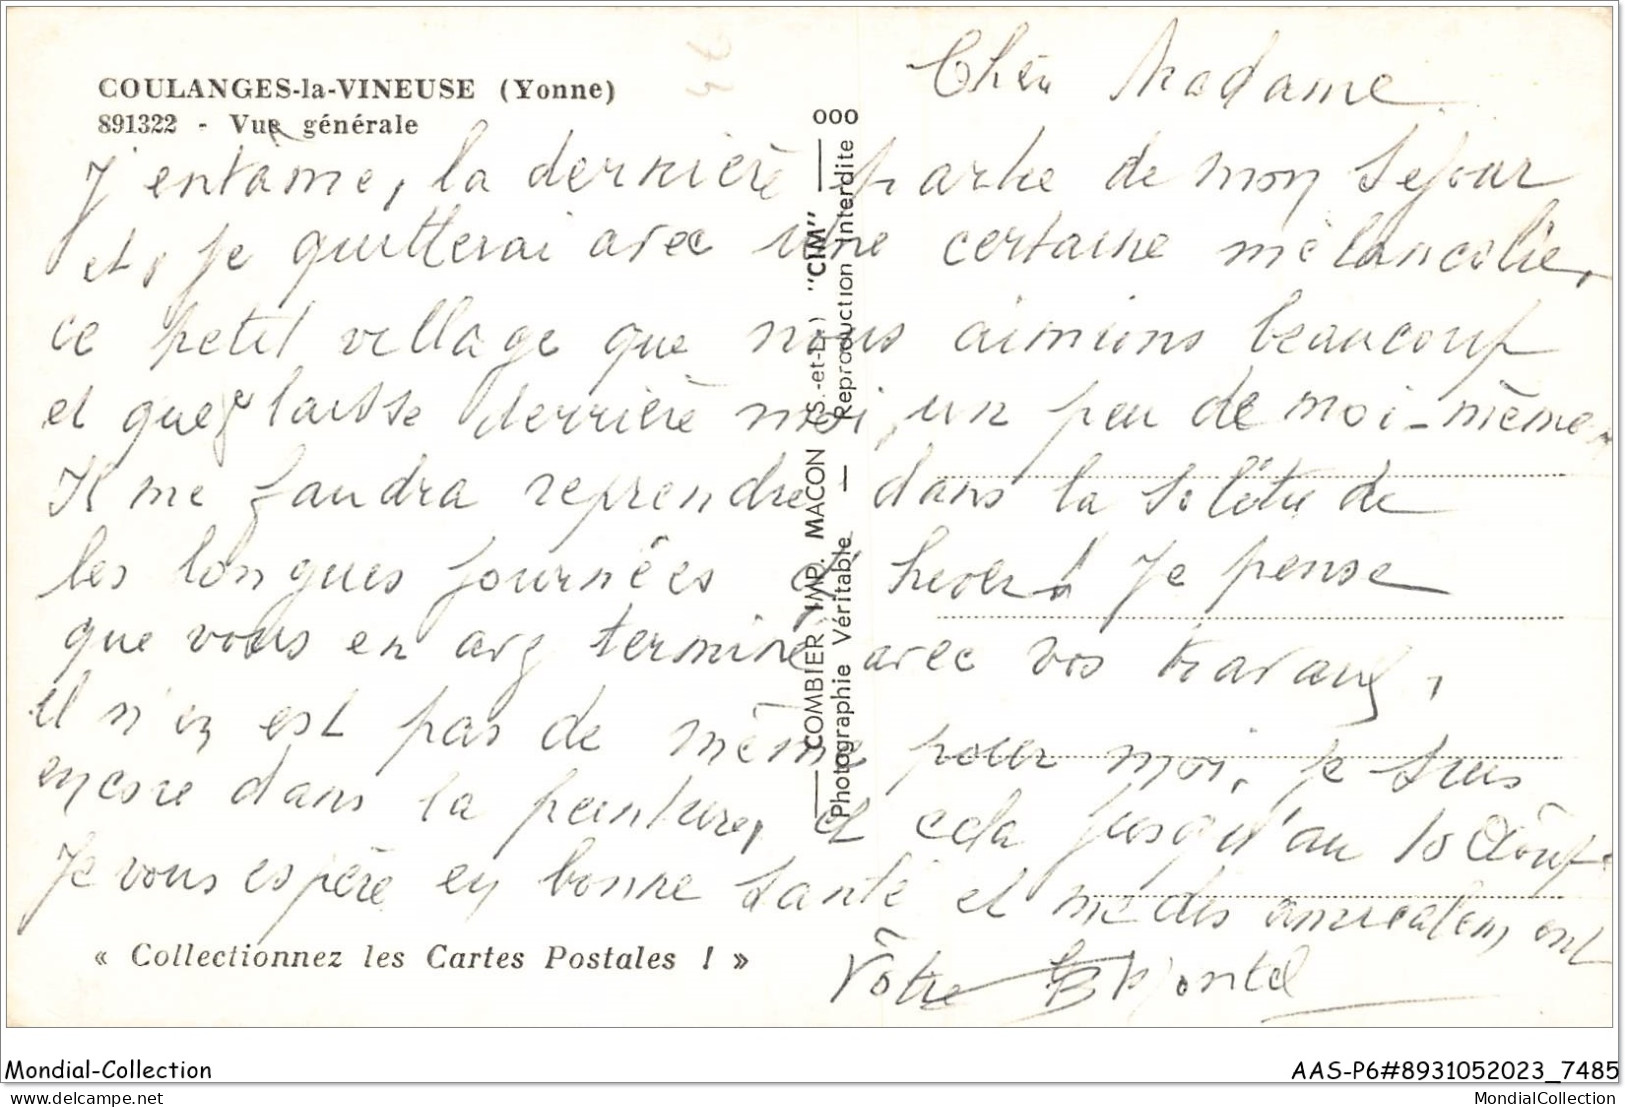 COULANGES-la-VINEUSE (Yonne)
891322 - Vue générale
Chère Madame
J'entame, la dernière partie de mon séjour
et, je quitterai avec une certaine mélancolie,
ce petit village que nous aimions beaucoup
et que je laisse derrière moi, un peu de moi-même,
Il me faudra reprendre dans la solitude
les longues journées d'hiver! Je pense
que vous en avez terminé avec vos travaux,
il n'en est pas de même pour moi, je suis
encore dans la peinture, et cela jusqu'au 10 Août.
Je vous espère en bonne santé et me dis amicalement
Vôtre
ooo
COMBIER IMP. MACON (S.-et-L.) "CIM"
Photographie Véritable — Reproduction Interdite
« Collectionnez les Cartes Postales ! »
Mondial-Collection
AAS-P6#8931052023_7485
delcampe.net
MondialCollection